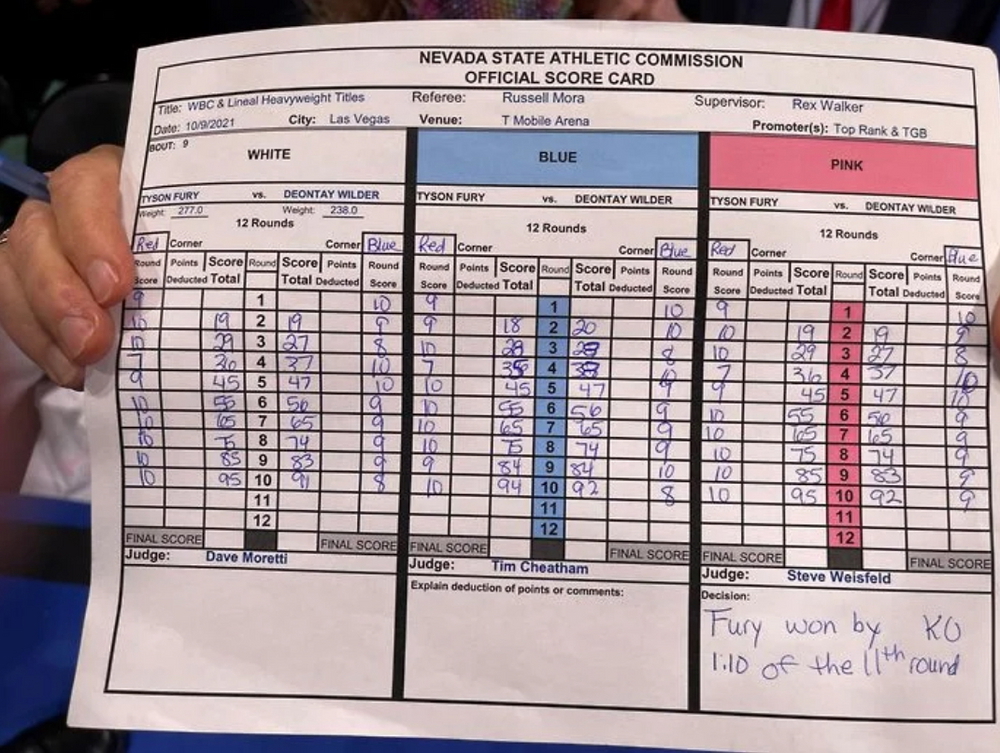 NEVADA STATE ATHLETIC COMMISSION
OFFICIAL SCORE CARD
Title: WBC & Lineal Heavyweight Titles Referee: Russell Mora Supervisor: Rex Walker
Date: 10/9/2021 City: Las Vegas Venue: T Mobile Arena Promoter(s): Top Rank & TGB
BOUT: 9
WHITE BLUE PINK
TYSON FURY vs. DEONTAY WILDER TYSON FURY vs. DEONTAY WILDER TYSON FURY vs. DEONTAY WILDER
Weight: 277.0 Weight: 238.0
12 Rounds 12 Rounds 12 Rounds
Red Corner Corner Blue Red Corner Corner Blue Red Corner Corner Blue
Round Score Points Deducted Score Total Round Score Total Points Deducted Round Score Round Score Points Deducted Score Total Round Score Total Points Deducted Round Score Round Score Points Deducted Score Total Round Score Total Points Deducted Round Score
9 1 10 9 1 10 9 1 10
10 19 2 19 9 9 18 2 20 10 10 19 2 19 9
10 29 3 27 8 10 28 3 28 8 10 29 3 27 8
7 36 4 37 10 7 4 10 7 36 4 37 10
9 45 5 47 10 10 45 5 47 9 9 45 5 47 10
10 55 6 56 9 10 55 6 56 9 10 55 6 56 9
10 65 7 65 9 10 65 7 65 9 10 65 7 65 9
10 75 8 74 9 10 75 8 74 9 10 75 8 74 9
10 85 9 83 9 9 84 9 84 10 10 85 9 83 9
10 95 10 91 8 10 94 10 92 8 10 95 10 92 9
11 11 11
12 12 12
FINAL SCORE FINAL SCORE FINAL SCORE FINAL SCORE FINAL SCORE FINAL SCORE
Judge: Dave Moretti Judge: Tim Cheatham Judge: Steve Weisfeld
Explain deduction of points or comments: Decision:
Fury won by KO
1:10 of the 11th round